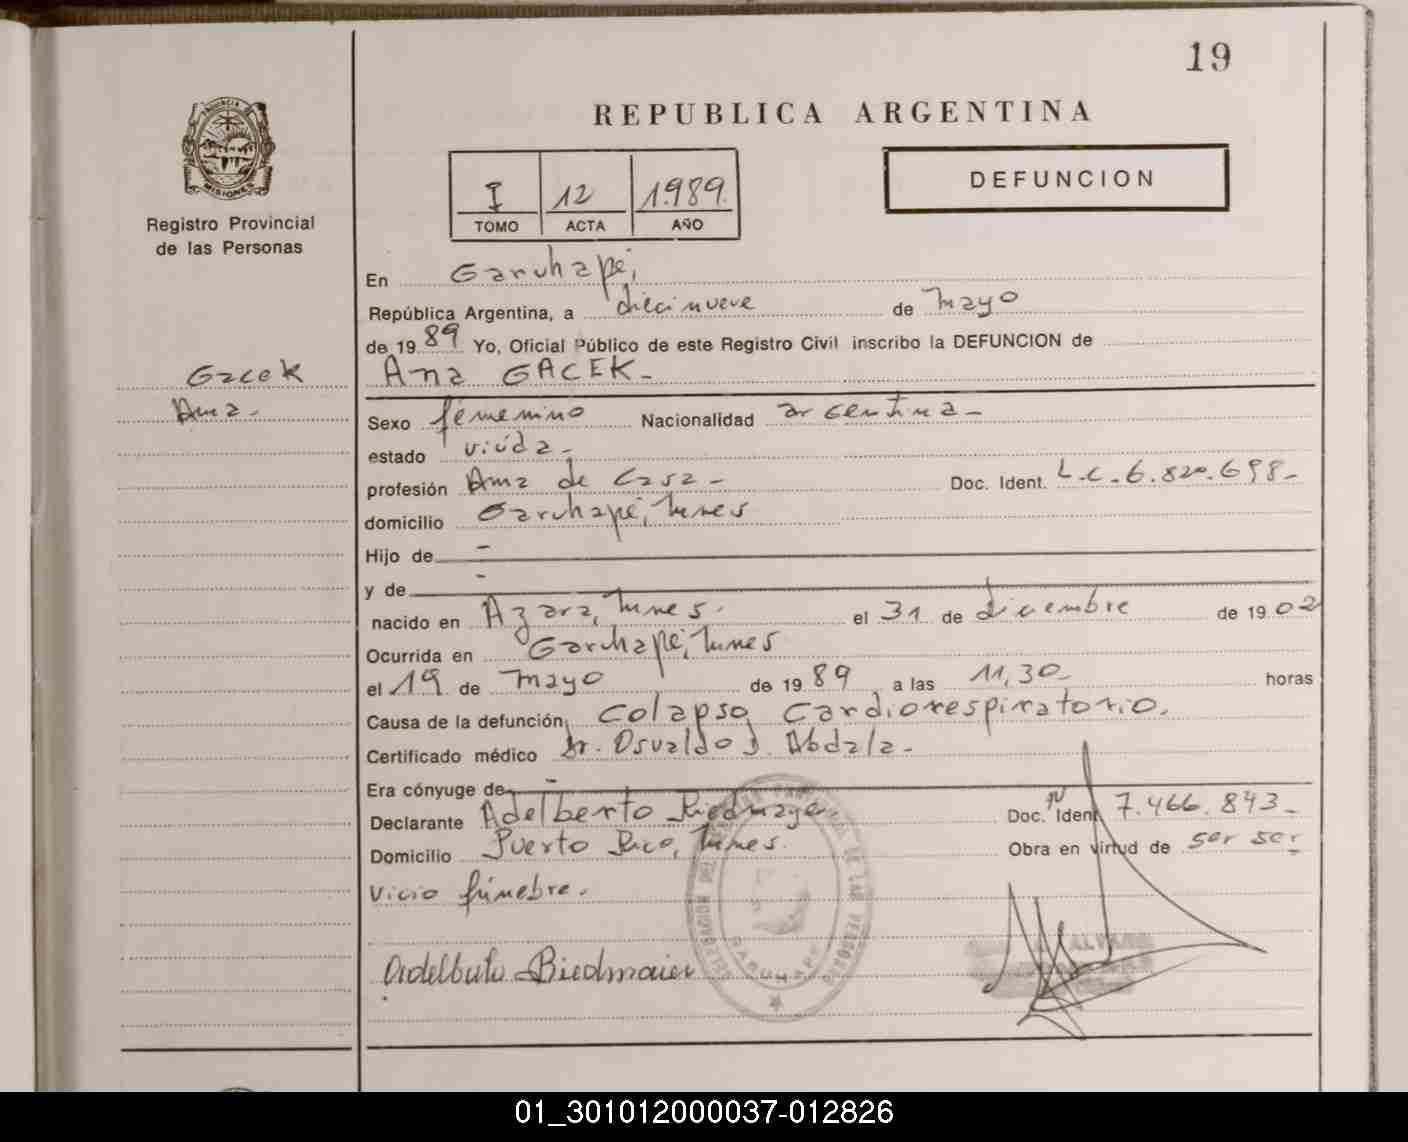 19
REPUBLICA ARGENTINA
PROVINCIA DE
MISIONES
Registro Provincial
de las Personas
I 12 1.989.
TOMO ACTA AÑO
DEFUNCION
En Garuhapé,
República Argentina, a diecinueve de mayo
de 1989 Yo, Oficial Público de este Registro Civil inscribo la DEFUNCION de
Gacek
Ana GACEK-
Ana-
Sexo femenino Nacionalidad argentina-
estado viúda-
profesión Ama de Casa- Doc. Ident. L.C. 6.820.698-
domicilio Garuhapé,
Hijo de -
y de -
nacido en Azara, el 31 de diciembre de 1902
Ocurrida en Garuhapé,
el 19 de mayo de 1989 a las 11,30- horas
Causa de la defunción Colapso Cardiorespiratorio.
Certificado médico Dr. Osvaldo J. Abdala-
Era cónyuge de -
Declarante Adelberto Doc. Ident. 7.466.843-
Domicilio Puerto Rico, Obra en virtud de ser ser
vicio fúnebre.
DE LAS PERSONAS
GARUHAPE
Adelberto Biedmaier
01_301012000037-012826